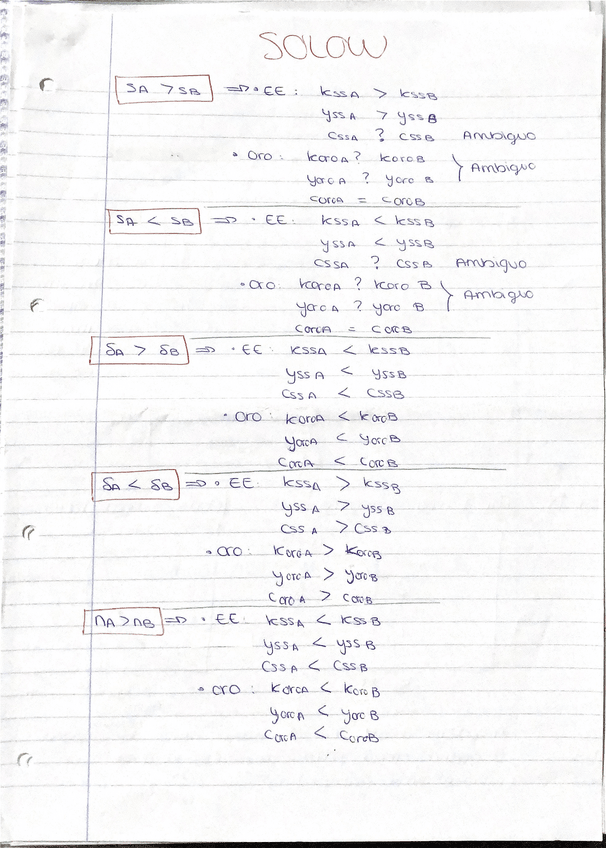 SOLOW
SA > SB ⇒ • EE: KSSA > KSSB
YSSA > YSSB
CSSA ? CSSB Ambiguo
• Oro: KoroA ? KoroB
YoroA ? Yoro B } Ambiguo
CoroA = CoroB
SA < SB ⇒ • EE: KSSA < KSSB
YSSA < YSSB
CSSA ? CSSB Ambiguo
• Oro: KoroA ? Koro B
YoroA ? Yoro B } Ambiguo
CoroA = CoroB
δA > δB ⇒ • EE: KSSA < KSSB
YSSA < YSSB
CSSA < CSSB
• Oro: KoroA < KoroB
YoroA < YoroB
CoroA < CoroB
δA < δB ⇒ • EE: KSSA > KSSB
YSSA > YSSB
CSSA > CSSB
• Oro: KoroA > KoroB
YoroA > YoroB
CoroA > CoroB
nA > nB ⇒ • EE: KSSA < KSSB
YSSA < YSSB
CSSA < CSSB
• Oro: KoroA < KoroB
YoroA < YoroB
CoroA < CoroB